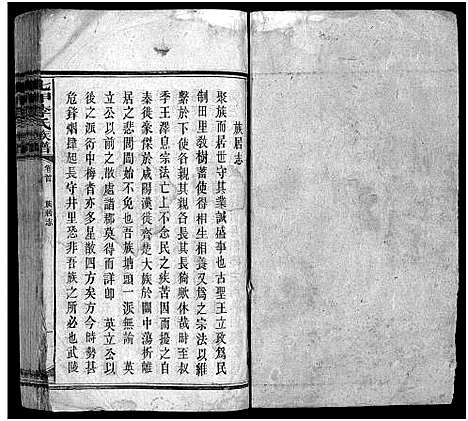 族居志
聚族而居世守其業誠盛事也古聖王立政為民
制田里教樹蓄使各相生相養又為之宗法以維
繫於下使各親其親各長其長猗歟休哉時至叔
季王澤息宗法亡上不念民之疾苦因而播遷
秦徙豪傑於咸陽漢徙齊楚大族於關中蕩析離
居之悲問閻始不免也吾族塘頭一派無論 英
立公以上散處諸那莫得而詳卽 英立公以
後之派衍中梅者亦多星散四方矣方今時勢甚
危鋒烟肆起長守井里恐非吾族之所必也武陵
七甲李氏族譜
卷首
族居志